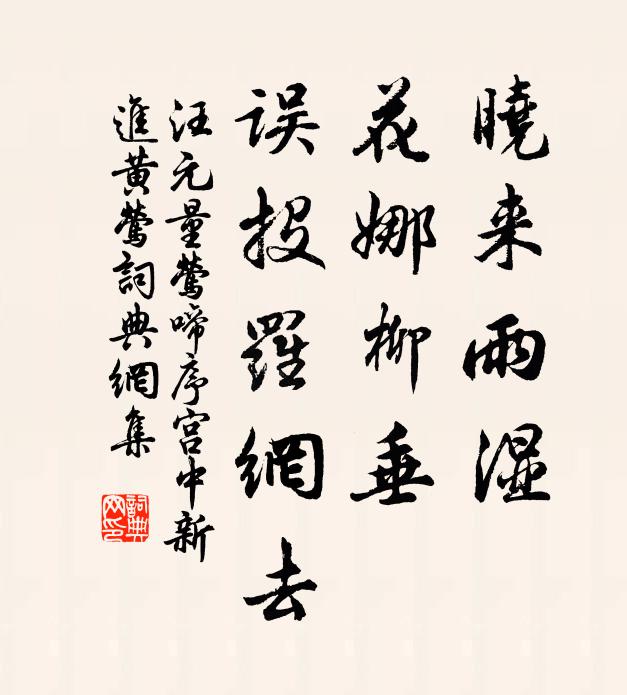 曉来雨湿
花娜柳垂
误投羅網去
汪元量鶯啼序宫中新
進黄鶯詞典網集
詞典網印